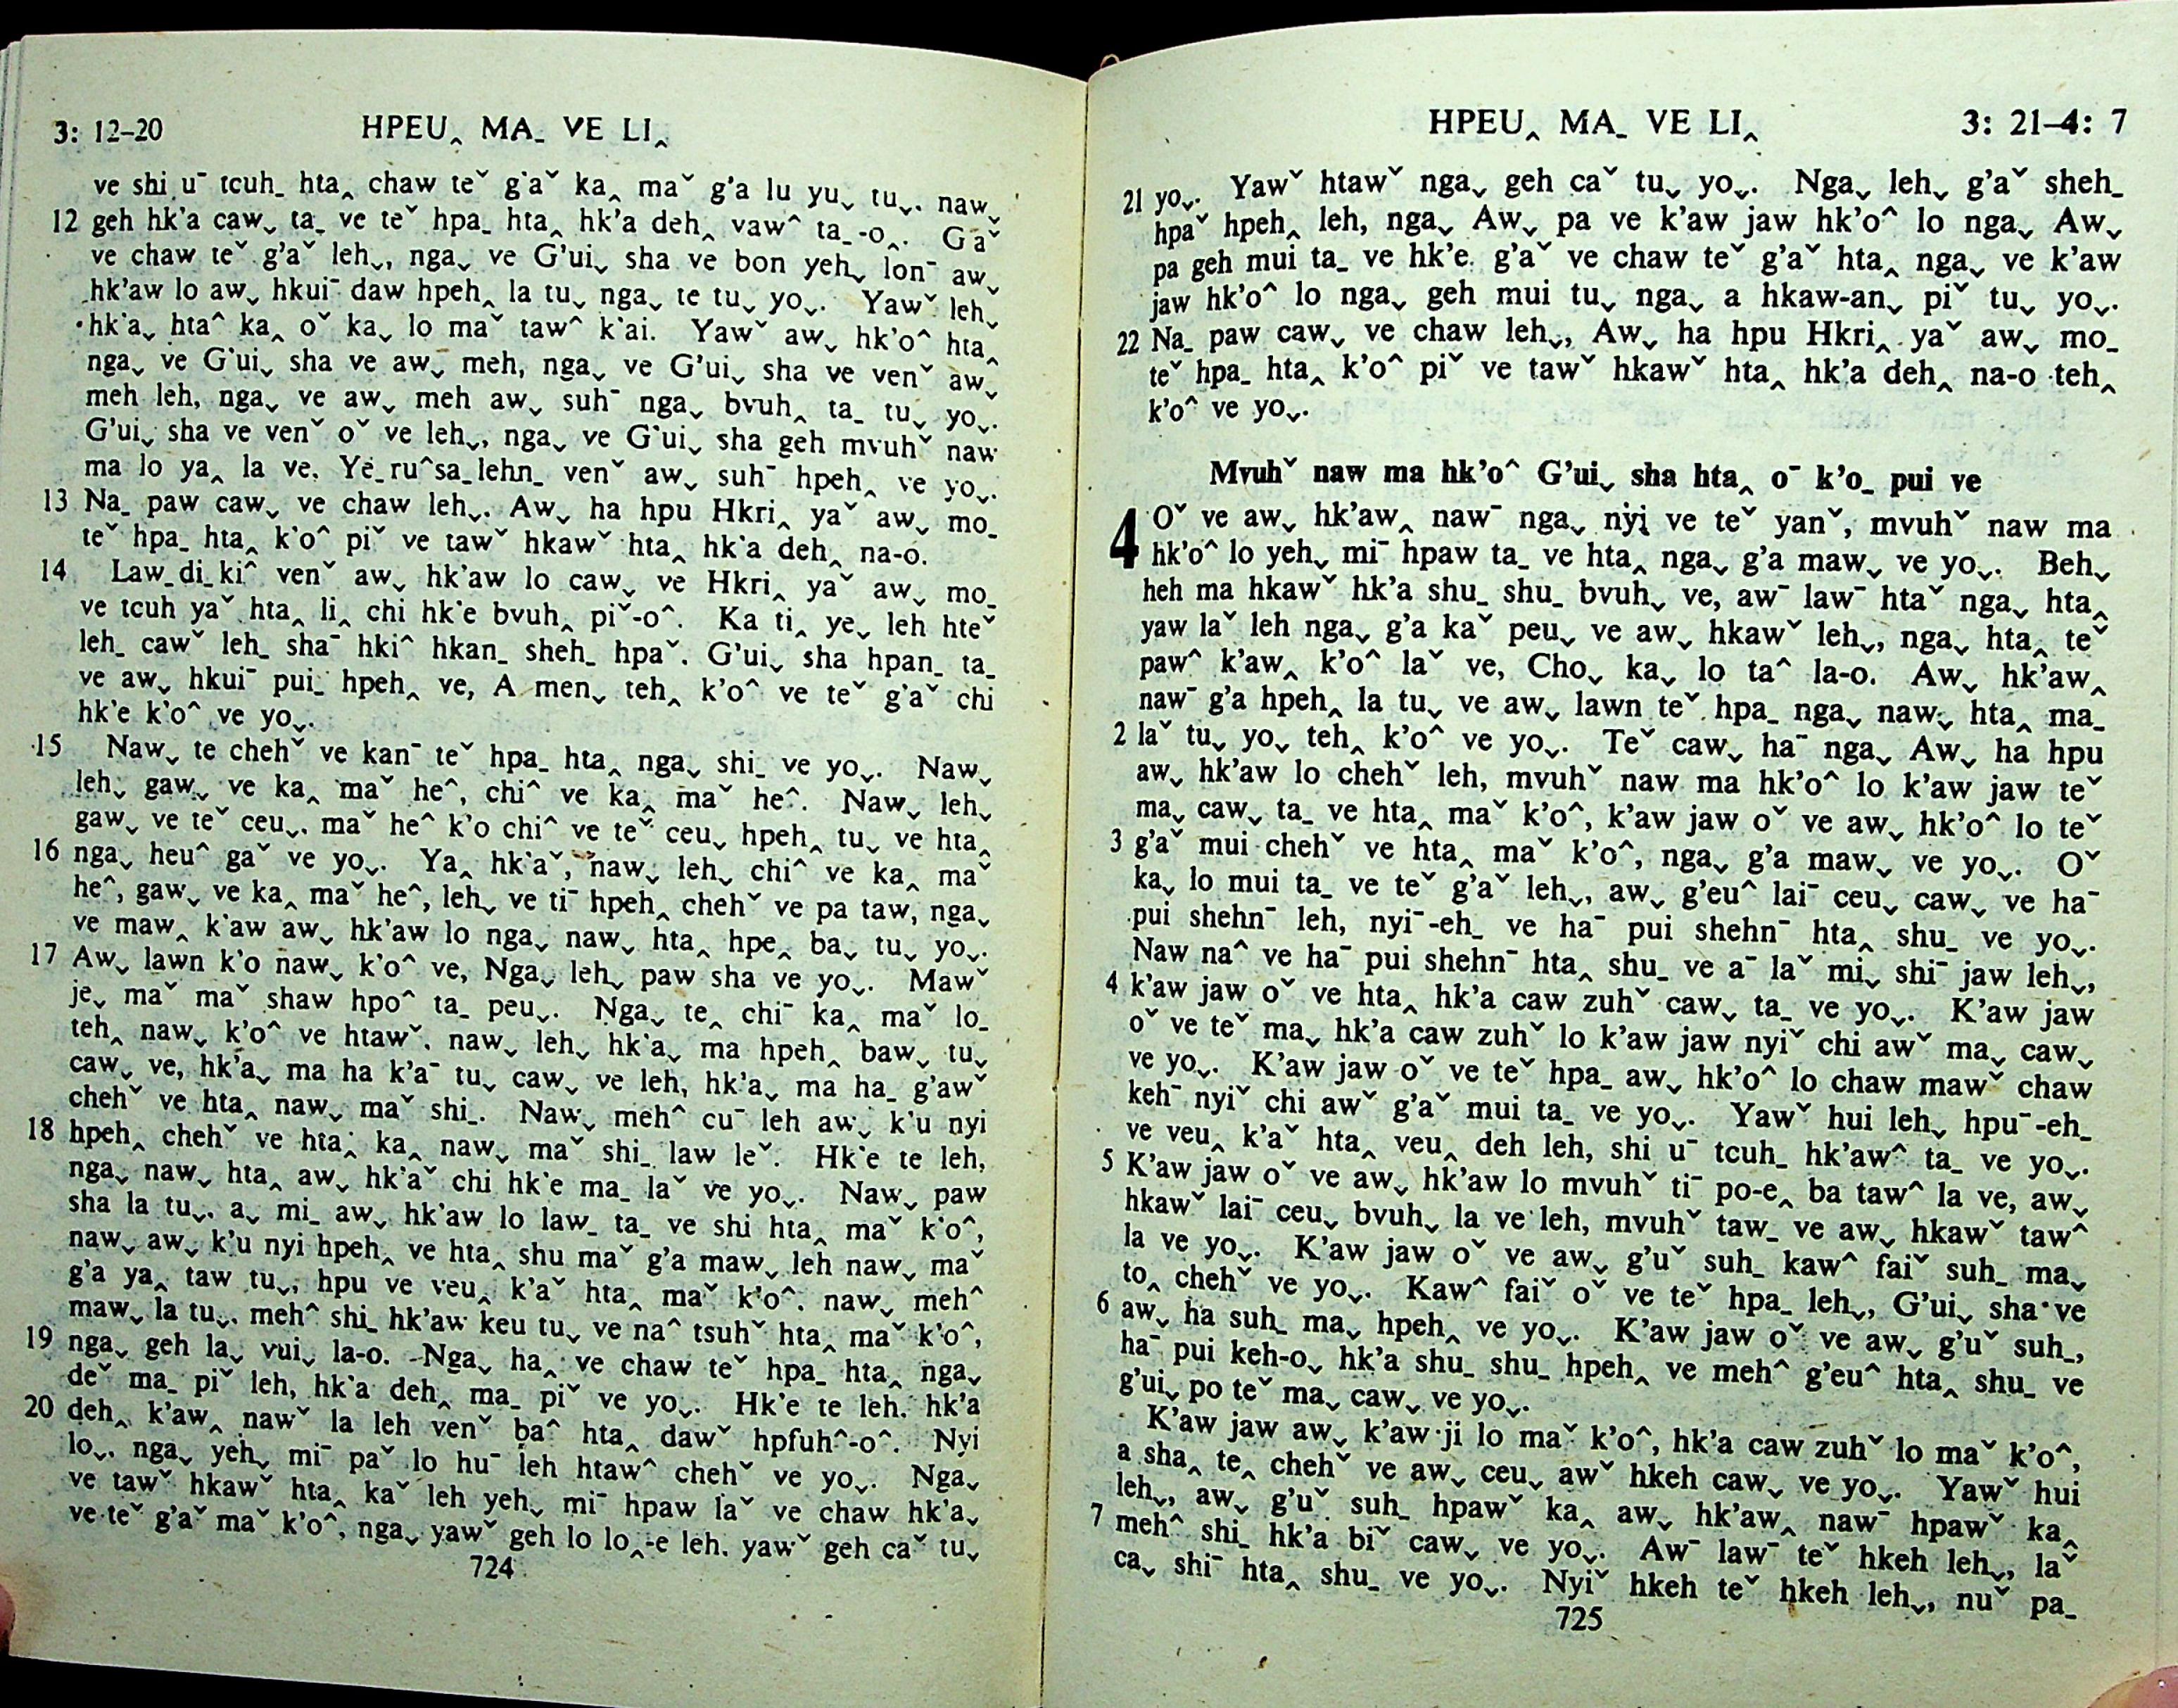 3: 12–20 HPEU˰ MA˗ VE LI˰
ve shi uˉ tcuh˗ hta˰ chaw teˇ g'aˇ ka˰ maˇ g'a lu yu˯ tu˯. naw˯
12 geh hk'a caw˯ ta˗ ve teˇ hpa˗ hta˰ hk'a deh˰ vawˆ ta˗-o˰. G'aˇ
ve chaw teˇ g'aˇ leh˯, nga˯ ve G'ui˯ sha ve bon yeh˯ lonˉ aw˯
hk'aw lo aw˯ hkuiˉ daw hpeh˰ la tu˯ nga˯ te tu˯ yo˯. Yawˇ leh˯
hk'a˯ htaˆ ka˰ oˇ ka˯ lo maˇ tawˆ k'ai. Yawˇ aw˯ hk'oˆ hta˰
nga˯ ve G'ui˯ sha ve aw˯ meh, nga˯ ve G'ui˯ sha ve venˇ aw˯
meh leh, nga˯ ve aw˯ meh aw˯ suhˉ nga˯ bvuh˰ ta˗ tu˯ yo˯.
G'ui˯ sha ve venˇ oˇ ve leh˯, nga˯ ve G'ui˯ sha geh mvuhˇ naw
ma lo ya˰ la ve. Ye˗ruˆsa˗lehn˗ venˇ aw˯ suhˉ hpeh˰ ve yo˯.
13 Na˗ paw caw˯ ve chaw leh˯. Aw˯ ha hpu Hkri˰ yaˇ aw˯ mo˗
teˇ hpa˗ hta˰ k'oˆ piˇ ve tawˇ hkawˇ hta˰ hk'a deh˰ na-o.
14 Law˗di˗kiˆ venˇ aw˯ hk'aw lo caw˯ ve Hkri˰ yaˇ aw˯ mo˗
ve tcuh yaˇ hta˰ li˰ chi hk'e bvuh˰ piˇ-oˆ. Ka ti˰ ye˯ leh hteˇ
leh˗ cawˇ leh˗ shaˉ hkiˆ hkan˗ sheh˗ hpaˇ. G'ui˯ sha hpan˗ ta˗
ve aw˯ hkuiˉ pui˗ hpeh˰ ve, A men˯ teh˰ k'oˆ ve teˇ g'aˇ chi
hk'e k'oˆ ve yo˯.
15 Naw˯ te chehˇ ve kanˉ teˇ hpa˗ hta˰ nga˯ shi˗ ve yo˯. Naw˯
leh˯ gaw˯ ve ka˰ maˇ heˆ, chiˆ ve ka˰ maˇ heˆ. Naw˯ leh˯
gaw˯ ve teˇ ceu˯. maˇ heˆ k'o chiˆ ve teˇ ceu˯ hpeh˰ tu˯ ve hta˰
16 nga˯ heuˆ gaˇ ve yo˯. Ya˰ hk'aˇ, naw˯ leh˯ chiˆ ve ka˰ maˇ
heˆ, gaw˯ ve ka˰ maˇ heˆ, leh˯ ve tiˉ hpeh˰ chehˇ ve pa taw, nga˯
ve maw˰ k'aw aw˯ hk'aw lo nga˯ naw˯ hta˰ hpe˰ ba˯ tu˯ yo˯.
17 Aw˯ lawn k'o naw˯ k'oˆ ve, Nga˯ leh˯ paw sha ve yo˯. Mawˇ
je˯ maˇ maˇ shaw hpoˆ ta˗ peu˯. Nga˯ te˰ chiˉ ka˰ maˇ lo˗
teh˰ naw˯ k'oˆ ve htawˇ. naw˯ leh˯ hk'a˯ ma hpeh˰ baw˯ tu˯
caw˯ ve, hk'a˯ ma ha k'aˉ tu˯ caw˯ ve leh, hk'a˯ ma ha˗ g'awˇ
chehˇ ve hta˰ naw˯ maˇ shi˗. Naw˯ mehˆ cuˉ leh aw˯ k'u nyi
18 hpeh˰ chehˇ ve hta˰ ka˰ naw˯ maˇ shi˗ law leˇ. Hk'e te leh,
nga˯ naw˯ hta˰ aw˯ hk'aˇ chi hk'e ma˗ laˇ ve yo˯. Naw˯ paw
sha la tu˯. a˯ mi˗ aw˯ hk'aw lo law˗ ta˗ ve shi hta˰ maˇ k'oˆ,
naw˯ aw˯ k'u nyi hpeh˰ ve hta˰ shu maˇ g'a maw˯ leh naw˯ maˇ
g'a ya˰ taw tu˯, hpu ve veu˰ k'aˇ hta˰ maˇ k'oˆ. naw˯ mehˆ
maw˯ la tu˯. mehˆ shi˗ hk'aw keu tu˯ ve naˆ tsuhˇ hta˰ maˇ k'oˆ,
19 nga˯ geh la˯ vui˯ la-o. Nga˯ ha˰ ve chaw teˇ hpa˗ hta˰ nga˯
deˇ ma˗ piˇ leh, hk'a deh˰ ma˗ piˇ ve yo˯. Hk'e te leh. hk'a
20 deh˰ k'aw˰ nawˇ la leh venˇ baˆ hta˰ dawˇ hpfuhˆ-oˆ. Nyi
lo˯. nga˯ yeh˯ miˉ paˇ lo huˉ leh htawˆ chehˇ ve yo˯. Nga˯
ve tawˇ hkawˇ hta˰ kaˇ leh yeh˯ miˉ hpaw laˇ ve chaw hk'a˯
ve teˇ g'aˇ maˇ k'oˆ, nga˯ yawˇ geh lo lo˰-e leh. yawˇ geh caˇ tu˯
724
HPEU˰ MA˗ VE LI˰ 3: 21–4: 7
21 yo˯. Yawˇ htawˇ nga˯ geh caˇ tu˯ yo˯. Nga˯ leh˯ g'aˇ sheh˗
hpaˇ hpeh˰ leh, nga˯ Aw˯ pa ve k'aw jaw hk'oˆ lo nga˯ Aw˯
pa geh mui ta˗ ve hk'e. g'aˇ ve chaw teˇ g'aˇ hta˰ nga˯ ve k'aw
jaw hk'oˆ lo nga˯ geh mui tu˯ nga˯ a hkaw-an˯ piˇ tu˯ yo˯.
22 Na˗ paw caw˯ ve chaw leh˯, Aw˯ ha hpu Hkri˰ yaˇ aw˯ mo˗
teˇ hpa˗ hta˰ k'oˆ piˇ ve tawˇ hkawˇ hta˰ hk'a deh˰ na-o teh˰
k'oˆ ve yo˯.
Mvuhˇ naw ma hk'oˆ G'ui˯ sha hta˰ oˉ k'o˗ pui ve
4 Oˇ ve aw˯ hk'aw˰ nawˉ nga˯ nyi ve teˇ yanˇ, mvuhˇ naw ma
hk'oˆ lo yeh˯ miˉ hpaw ta˗ ve hta˰ nga˯ g'a maw˯ ve yo˯. Beh˯
heh ma hkawˇ hk'a shu˗ shu˗ bvuh˯ ve, awˉ lawˉ htaˇ nga˯ hta˰
yaw laˇ leh nga˯ g'a kaˇ peu˯ ve aw˯ hkawˇ leh˯, nga˯ hta˰ teˇ
pawˆ k'aw˰ k'oˆ laˇ ve, Cho˯ ka˯ lo taˆ la-o. Aw˯ hk'aw˰
nawˉ g'a hpeh˰ la tu˯ ve aw˯ lawn teˇ hpa˗ nga˯ naw˯ hta˰ ma˗
2 laˇ tu˯ yo˯ teh˰ k'oˆ ve yo˯. Teˇ caw˯ haˉ nga˯ Aw˯ ha hpu
aw˯ hk'aw lo chehˇ leh, mvuhˇ naw ma hk'oˆ lo k'aw jaw teˇ
ma˯ caw˯ ta˗ ve hta˰ maˇ k'oˆ, k'aw jaw oˇ ve aw˯ hk'oˆ lo teˇ
3 g'aˇ mui chehˇ ve hta˰ maˇ k'oˆ, nga˯ g'a maw˯ ve yo˯. Oˇ
ka˯ lo mui ta˗ ve teˇ g'aˇ leh˯, aw˯ g'euˆ laiˉ ceu˯ caw˯ ve haˉ
pui shehnˉ leh, nyiˉ-eh˗ ve haˉ pui shehnˉ hta˰ shu˗ ve yo˯.
Naw naˆ ve haˉ pui shehnˉ hta˰ shu˗ ve aˉ laˇ mi˯ shiˉ jaw leh˯,
4 k'aw jaw oˇ ve hta˰ hk'a caw zuhˇ caw˯ ta˗ ve yo˯. K'aw jaw
oˇ ve teˇ ma˯ hk'a caw zuhˇ lo k'aw jaw nyiˇ chi awˇ ma˯ caw˯
ve yo˯. K'aw jaw oˇ ve teˇ hpa˗ aw˯ hk'oˆ lo chaw mawˇ chaw
kehˉ nyiˇ chi awˇ g'aˇ mui ta˗ ve yo˯. Yawˇ hui leh˯ hpuˉ-eh˗
ve veu˰ k'aˇ hta˰ veu˰ deh leh, shi uˉ tcuh˗ hk'awˆ ta˗ ve yo˯.
5 K'aw jaw oˇ ve aw˯ hk'aw lo mvuhˇ tiˉ po-e˰ ba tawˆ la ve, aw˯
hkawˇ laiˉ ceu˯ bvuh˯ la ve leh, mvuhˇ taw˗ ve aw˯ hkawˇ tawˆ
la ve yo˯. K'aw jaw oˇ ve aw˯ g'uˇ suh˗ kawˆ faiˇ suh˗ ma˯
to˰ chehˇ ve yo˯. Kawˆ faiˇ oˇ ve teˇ hpa˗ leh˯, G'ui˯ sha ve
6 aw˯ ha suh˗ ma˯ hpeh˰ ve yo˯. K'aw jaw oˇ ve aw˯ g'uˇ suh˗,
haˉ pui keh-o˯ hk'a shu˗ shu˗ hpeh˰ ve mehˆ g'euˆ hta˰ shu˗ ve
g'ui˯ po teˇ ma˯ caw˯ ve yo˯.
K'aw jaw aw˯ k'aw ji lo maˇ k'oˆ, hk'a caw zuhˇ lo maˇ k'oˆ,
a sha˰ te˰ chehˇ ve aw˯ ceu˯ awˇ hkeh caw˯ ve yo˯. Yawˇ hui
leh˯, aw˯ g'uˇ suh˗ hpawˇ ka˰ aw˯ hk'aw˰ nawˉ hpawˇ ka˰
7 mehˆ shi˗ hk'a biˇ caw˯ ve yo˯. Awˉ lawˉ teˇ hkeh leh˯, laˇ
ca˯ shiˉ hta˰ shu˗ ve yo˯. Nyiˇ hkeh teˇ hkeh leh˯, nuˇ pa˗
725